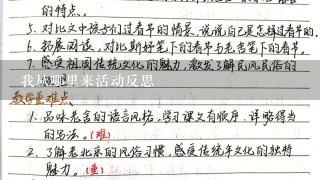 的特点。
5. 对比文中孩子们过春节的情景,说说自己是怎样过春节的。
6. 拓展阅读,对比斯好笔下的春节与老舍笔下的春节。
7. 感受祖国传统文化的魅力,激发了解民风民俗的
我从哪里来活动反思
教学重难点
1. 品味老舍的语言风格,学习课文有顺序、详略得当
的写法。(难)
2. 了解老北京的风俗习惯,感受传统年文化的独特
魅力。(重)